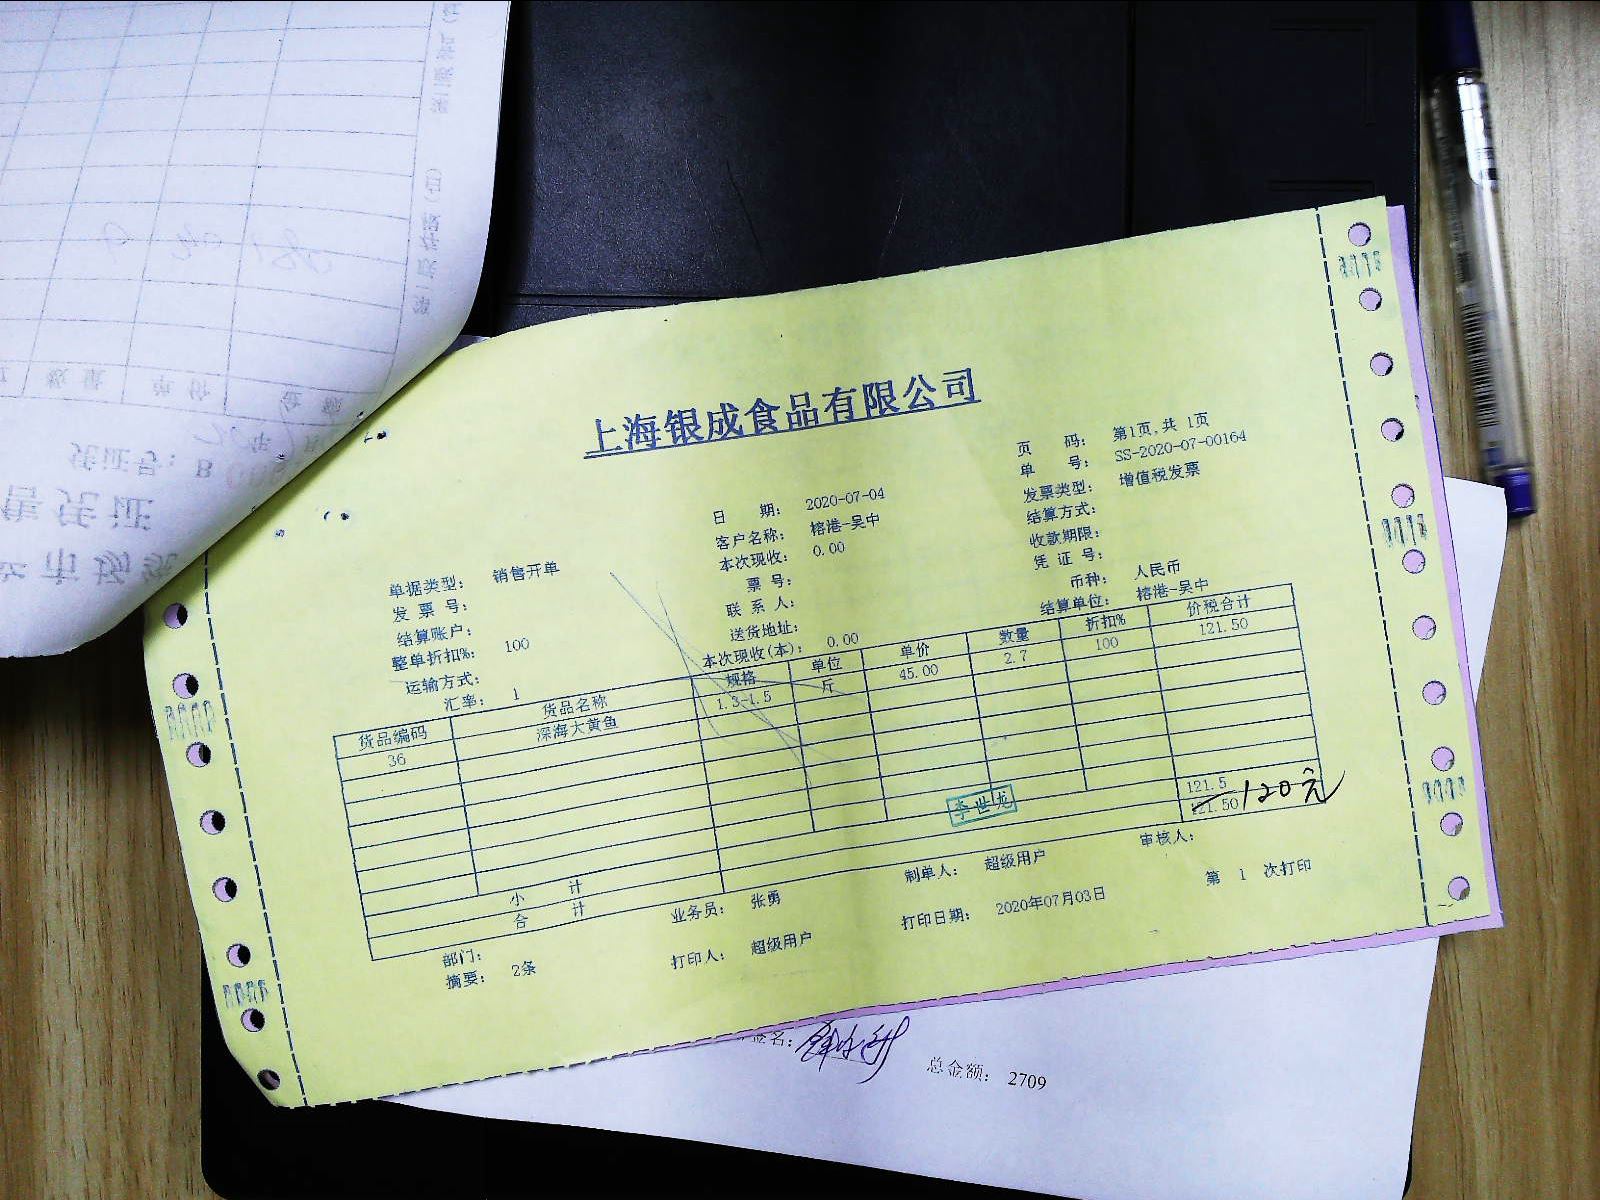 上海银成食品有限公司
页 码： 第1页,共 1页
单 号： SS-2020-07-00164
日 期： 2020-07-04 发票类型： 增值税发票
客户名称： 榕港-吴中 结算方式：
本次现收： 0.00 收款期限：
单据类型： 销售开单 票 号： 凭 证 号：
发 票 号： 联 系 人： 币种： 人民币
结算账户： 送货地址： 结算单位： 榕港-吴中
整单折扣%： 100 本次现收(本)： 0.00
运输方式：
汇率： 1
货品编码 货品名称 规格 单位 单价 数量 折扣% 价税合计
36 深海大黄鱼 1.3-1.5 斤 45.00 2.7 100 121.50
小 计 121.5
合 计 121.50 120元
李世龙
部门： 业务员： 张勇 制单人： 超级用户 审核人：
摘要： 2条 打印人： 超级用户 打印日期： 2020年07月03日 第 1 次打印
签名：
总金额： 2709
凭证号：B
数量 单价 金额
售凭证